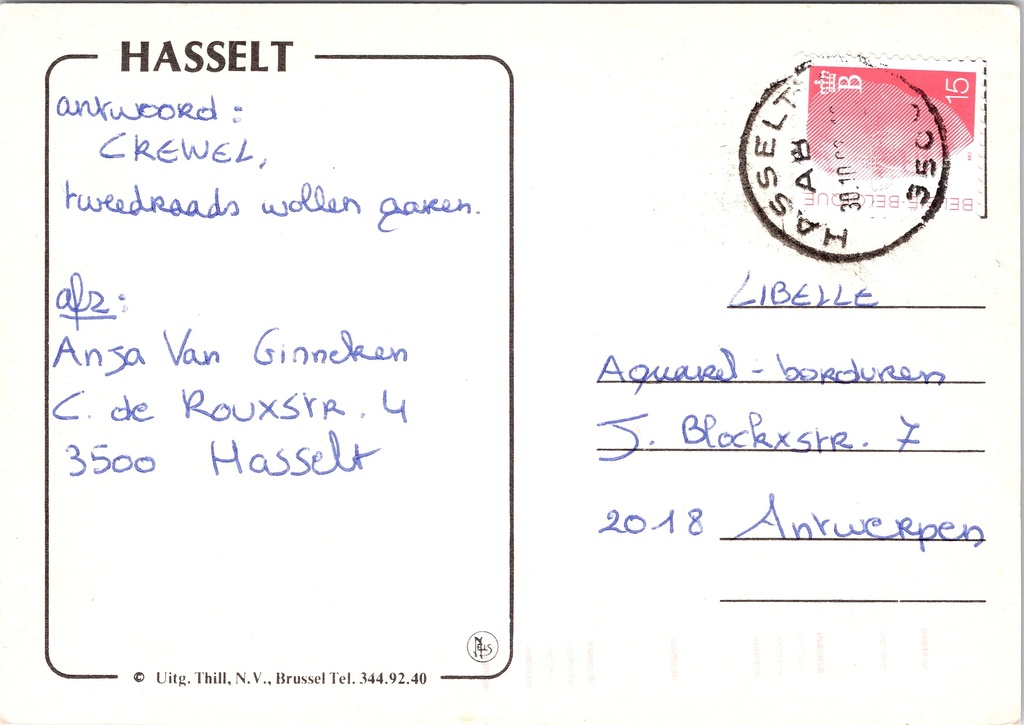 HASSELT
antwoord:
CREWEL,
tweedraads wollen garen.
afz:
Anja Van Ginneken
C. de Rouxstr. 4
3500 Hasselt
© Uitg. Thill, N.V., Brussel Tel. 344.92.40
B 15
BELGIË-BELGIQUE
HASSELT
AB
3500
HASSELT
LIBELLE
Aquarel-borduren
J. Blockxstr. 7
2018 Antwerpen